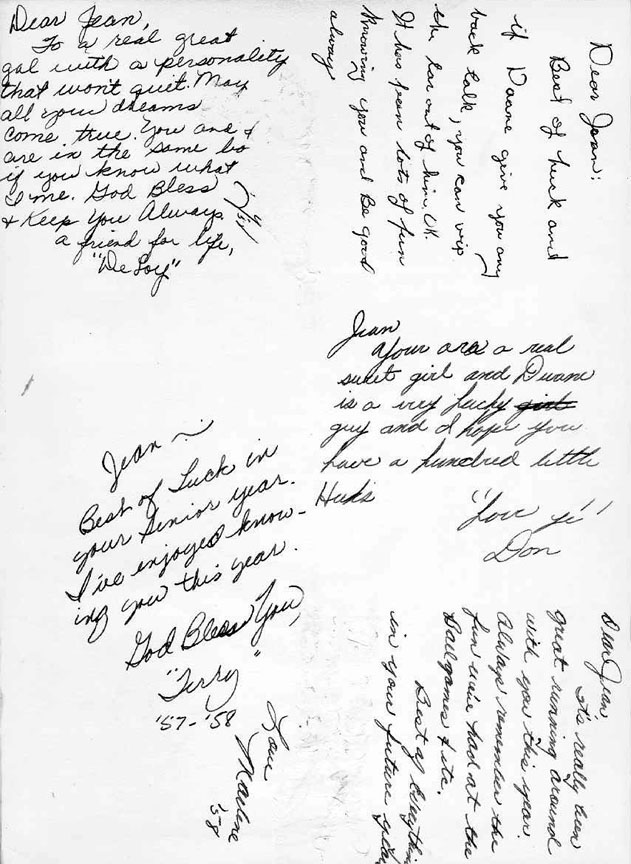 Dear Jean,
To a real great
gal with a personality
that won't quit. May
all your dreams
come true. You and I
are in the same bo
if you know what
I me. God Bless
& Keep You Always
a friend for life,
"DeLoy"
Dear Jean:
Best of luck and
if Duane give you any
back talk, you can rip
the ear out of him, OK.
It has been lots of fun
knowing you and Be good
always
Jean
Your are a real
sweet girl and Duane
is a very lucky girl
guy and I hope you
have a hundred little
"Love ye"
Don
Jean ~
Best of Luck in
your Senior year.
I've enjoyed know-
ing you this year.
God Bless You,
"Terry"
'57-'58
Dear Jean
It's really been
great running around
with you this year.
Always remember the
fun we've had at the
Ballgames & etc.
Best of Everything
in your future years
Love
Marlene
'58